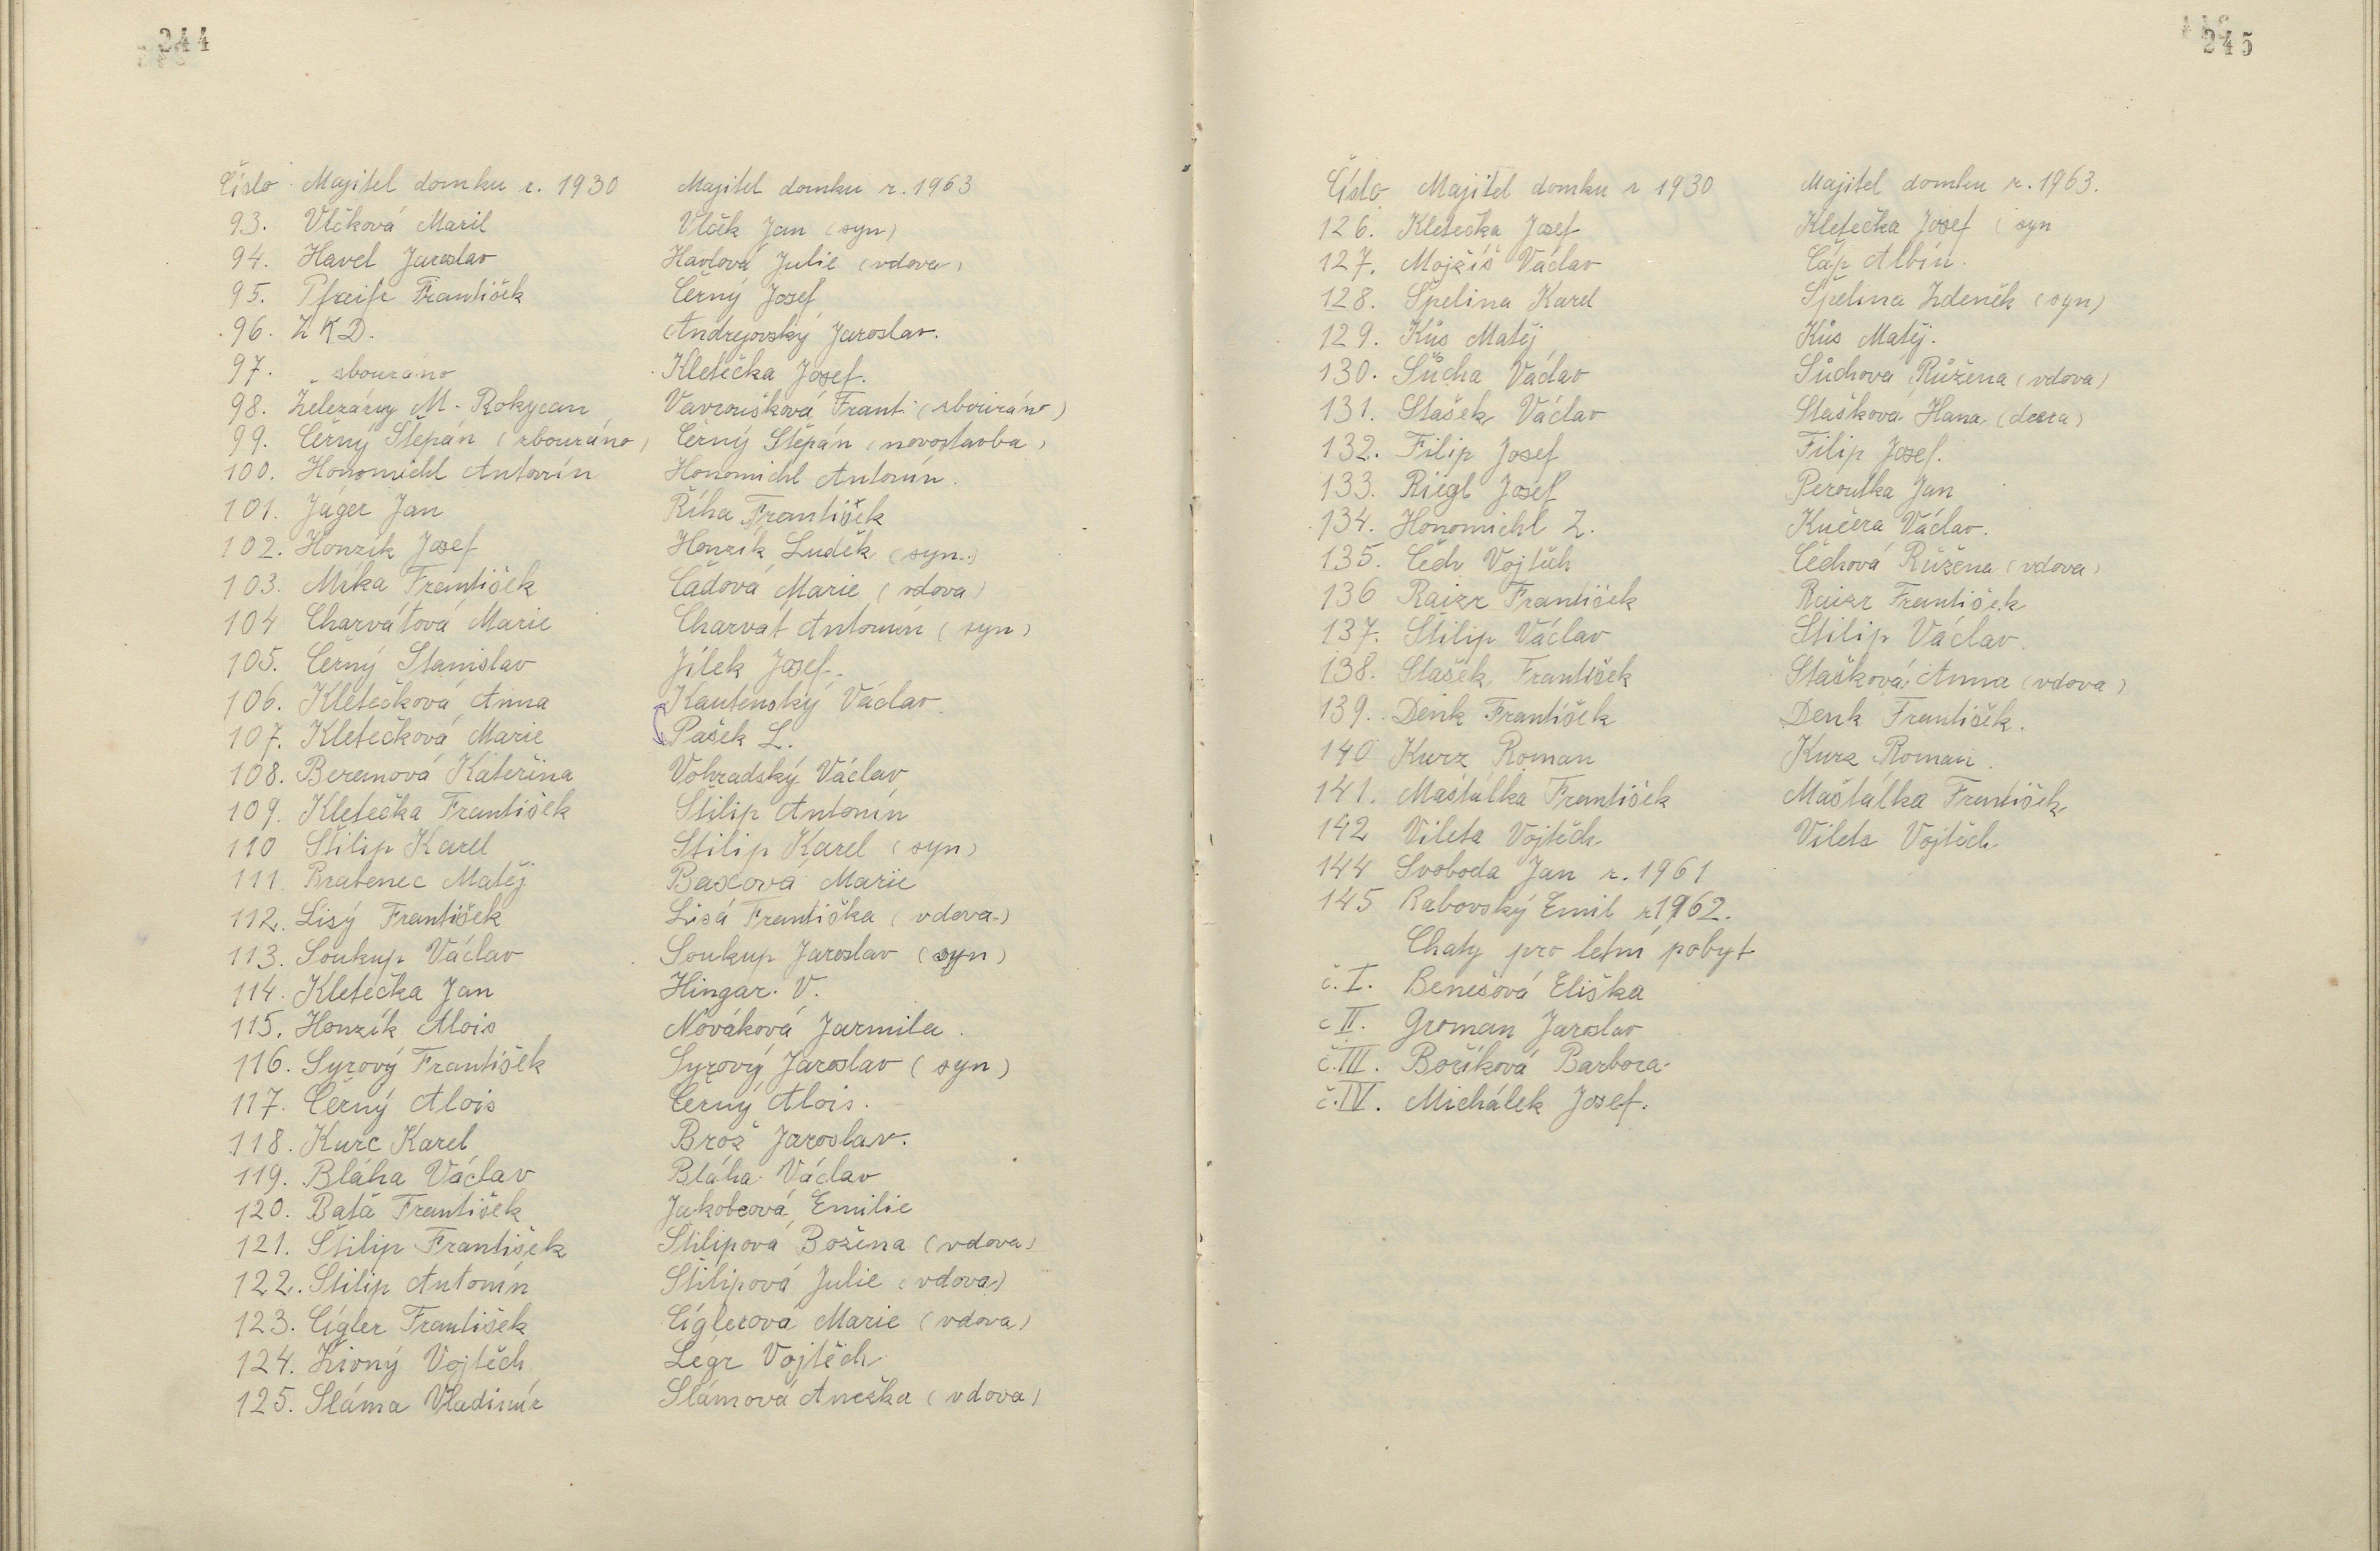 244
Číslo Majitel domku r. 1930 Majitel domku r. 1963
93. Vlčková Marie Vlček Jan (syn)
94. Havel Jaroslav Havlová Julie (vdova)
95. Pfeifr František Černý Josef
96. Z K D. Andrejovský Jaroslav.
97. " sbouráno Kletečka Josef.
98. Železárny M. Rokycan Vavroušková Franti (sbouráno)
99. Černý Štěpán (sbouráno) Černý Štěpán (novostavba)
100. Honomichl Antonín Honomichl Antonín.
101. Jáger Jan Říha František
102. Honzík Josef Honzík Luděk (syn.)
103. Míka František Čadová Marie (vdova)
104 Charvátová Marie Charvát Antonín (syn)
105. Černý Stanislav Jílek Josef.
106. Kletečková Anna Kautenský Václav.
107. Kletečková Marie Pašek L.
108. Beranová Kateřina Vohradský Václav
109. Kletečka František Štilip Antonín
110 Štilip Karel Štilip Karel (syn)
111. Brabenec Matěj Baxová Marie
112. Lisý František Lisá Františka (vdova)
113. Soukup Václav Soukup Jaroslav (syn)
114. Kletečka Jan Hingar. V.
115. Honzík Alois Nováková Jarmila.
116. Syrový František Syrový Jaroslav (syn)
117. Černý Alois Černý Alois.
118. Kurc Karel Brož Jaroslav.
119. Bláha Václav Bláha Václav
120. Bata František Jakobcová Emilie
121. Štilip František Štilipová Božena (vdova)
122. Štilip Antonín Štilipová Julie (vdova)
123. Cígler František Cíglerová Marie (vdova)
124. Živný Vojtěch Légr Vojtěch
125. Sláma Vladimír Slámová Anežka (vdova)
245
Číslo Majitel domku r 1930 Majitel domku r. 1963.
126. Kletečka Josef Kletečka Josef (syn
127. Mojžíš Václav Čáp Albín.
128. Špelina Karel Špelina Zdeněk (syn)
129. Kůs Matěj Kůs Matěj.
130. Sůcha Václav Sůchová Růžena (vdova)
131. Stašek Václav Stašková Hana (dcera)
132. Filip Josef Filip Josef.
133. Riegl Josef Peroutka Jan
134. Honomichl Z. Kučera Václav.
135. Čech Vojtěch Čechová Růžena (vdova)
136 Raizr František Raizr František
137. Štilip Václav Štilip Václav.
138. Stašek František Stašková Anna (vdova)
139. Denk František Denk František.
140 Kurz Roman Kurz Roman.
141. Maštálka František Maštálka František
142 Vileta Vojtěch Vileta Vojtěch
144 Svoboda Jan r. 1961
145 Rabovský Emil r 1962.
Chaty pro letní pobyt
č. I. Benešová Eliška
č II. Groman Jaroslav
č. III. Boříková Barbora
č. IV. Michálek Josef.